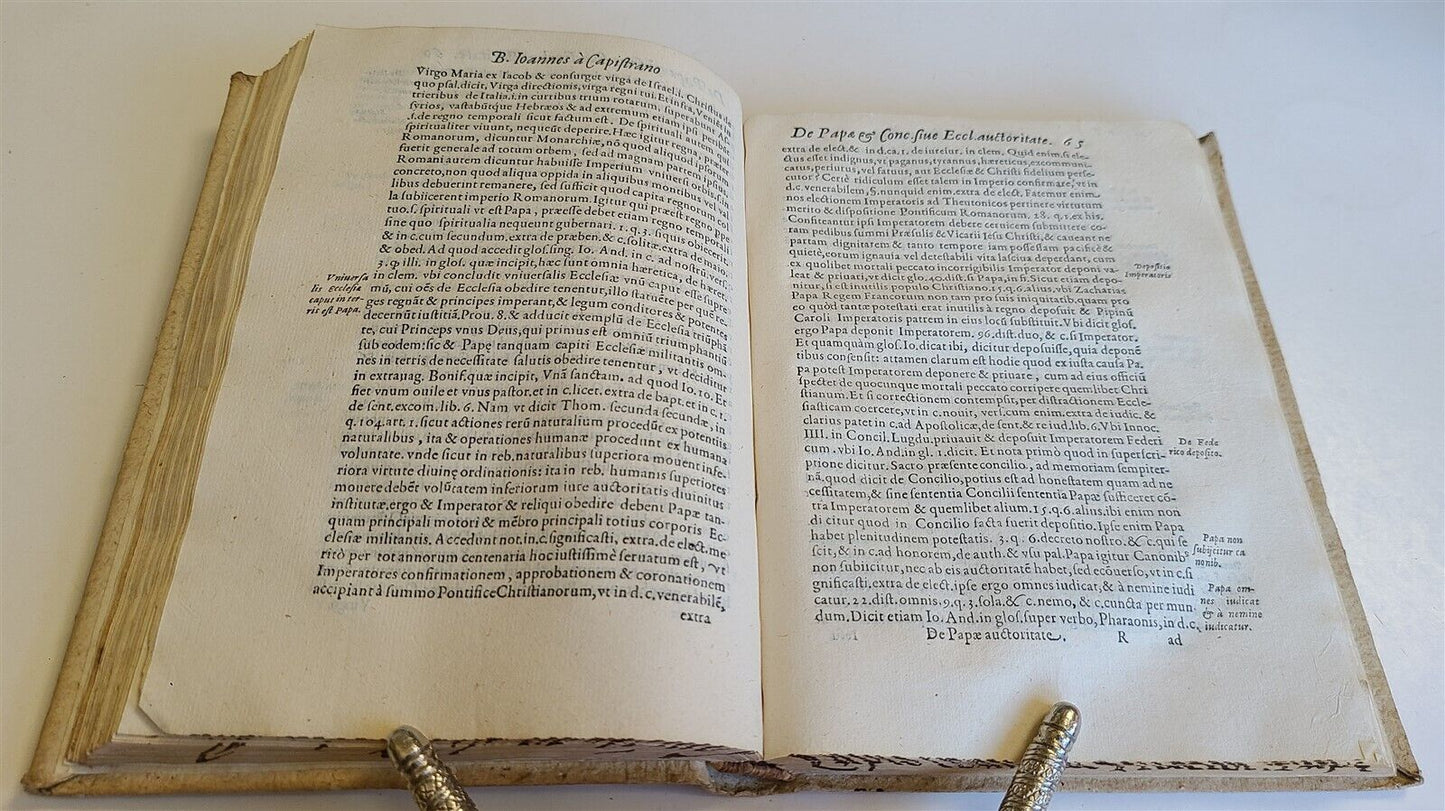 B. Ioannes à Capistrano
Virgo Maria ex Iacob & consurget virga de Israel.i. Christus de
quo psal.dicit, Virga directionis, virga regni tui. Et infra, Veniet in
trieribus de Italia.i. in curribus trium rotarum, superabunt As
syrios, vastabũtque Hebræos & ad extremum etiam ipsi peribũt
.s.de regno temporali sicut factum est. De spirituali autem
spiritualiter viuunt, nequeũt deperire. Hæc igitur regna, præter
Romanorum, dicuntur Monarchiæ, nõ quod aliquod ipsorum
fuerit generale ad totum orbem, sed ad magnam partem ipsius.
Romani autem dicuntur habuisse Imperium vniuersi orbis, in
concreto, non quod aliqua oppida in aliquibus montibus vel val
libus debuerint remanere, sed sufficit quod capita regnorum
la subiicerent imperio Romanorum. Igitur qui præest regno
tuo.s. spirituali vt est Papa, præesse debet etiam regno temporali
sine quo spiritualia nequeunt gubernari. 1. q. 3. siquis obiecerit
& in c.cum secundum.extra de præben. & c. solitæ.extra de maio.
& obed. Ad quod accedit glos.sing. Io. And. in c. ad nostrũ
3. q. illi. in glos. quæ incipit, hæc sunt omnia hæretica, de hæret.
in clem. vbi concludit vniuersalis Ecclesiæ vnũ caput esse supre
mũ, cui oẽs de Ecclesia obedire tenentur, illo statuẽte per quẽ re-
ges regnãt & principes imperant, & legum conditores & potentes
decernũt iustitiã. Prou. 8. & adducit exemplũ de Ecclesia triũphã
te, cui Princeps vnus Deus, qui primus est omniũ triumphantiũ
sub eodem: sic & Papę tanquam capiti Ecclesiæ militantis om-
nes in terris de necessitate salutis obedire tenentur, vt deciditur
in extrauag. Bonif.quæ incipit, Vnã sanctam. ad quod Io. 10. Et
fiet vnum ouile et vnus pastor.et in c.licet.extra de bapt.et in c. 1.
de sent.excom.lib. 6. Nam vt dicit Thom. secunda secundæ, in
q. 104.art. 1. sicut actiones rerũ naturalium procedũt ex potentiis
naturalibus, ita & operationes humanæ procedunt ex humana
voluntate. vnde sicut in reb.naturalibus superiora mouent infe-
riora virtute diuinę ordinationis: ita in reb. humanis superiores
mouere debẽt volũtatem inferiorum iure auctoritatis diuinitus
institutæ.ergo & Imperator & reliqui obedire debent Papæ tan-
quam principali motori & mẽbro principali totius corporis Ec-
clesiæ militantis. Accedunt not.in.c.significasti, extra.de elect.me
ritò per tot annorum centenaria hoc iustissimè seruatum est, vt
Imperatores confirmationem, approbationem & coronationem
accipiant à summo Pontifice Christianorum, vt in d. c. venerabilẽ,
extra
Vniuersa
lis Ecclesiæ
caput in ter-
ris est Papa.
De Papæ & Conc. siue Eccl. auctoritate. 65
extra de elect.& in d.ca. 1. de iureiur. in clem. Quid enim.si ele-
ctus esset indignus, vt paganus, tyrannus, hæreticus, excommuni-
catus, periurus, vel fatuus, aut Ecclesiæ & Christi fidelium perse-
cutor? Certè ridiculum esset talem in Imperio confirmare, vt in
d.c. venerabilem, §. nunquid enim. extra de elect. Fatemur enim
nos electionem Imperatoris ad Theutonicos pertinere virtutum
merito & dispositione Pontificum Romanorum. 28. q. 1. ex his.
Confiteantur ipsi Imperatorem debere ceruicem submittere co-
ram pedibus summi Præsulis & Vicarii Iesu Christi, & caueant ne
partem dignitatem & tanto tempore iam possessam pacificè &
quietè, eorum ignauia vel detestabili vita lasciua deperdant, cum
ex quolibet mortali peccato incorrigibilis Imperator deponi va-
leat & priuari, vt dicit glo. 40. dist. si Papa, in fi. Sicut etiam depo-
nitur, si est inutilis populo Christiano. 15. q. 6. alius. vbi Zacharias
Papa Regem Francorum non tam pro suis iniquitatib. quam pro
eo quòd tantæ potestati erat inutilis à regno deposuit & Pipinũ
Caroli Imperatoris patrem in eius locũ substituit. Vbi dicit glos.
ergo Papa deponit Imperatorem. 96. dist. duo, & c. si Imperator.
Et quamquàm glos. Io. dicat ibi, dicitur deposuisse, quia deponẽ
tibus consensit: attamen clarum est hodie quod ex iusta causa Pa.
pa potest Imperatorem deponere & priuare, cum ad eius officiũ
spectet de quocunque mortali peccato corripere quemlibet Chri
stianum. Et si correctionem contempsit, per distractionem Eccle-
siasticam coercere, vt in c. nouit, vers. cum enim. extra de iudic. &
clarius patet in c.ad Apostolicæ, de sent. & re iud. lib. 6. Vbi Innoc.
IIII. in Concil. Lugdu. priuauit & deposuit Imperatorem Federi
cum. vbi Io. And. in gl. 1. dicit. Et nota primò quod in superscri-
ptione dicitur. Sacro præsente concilio, ad memoriam sempiter-
nã. quod dicit de Concilio, potius est ad honestatem quam ad ne
cessitatem, & sine sententia Concilii sententia Papæ sufficeret cõ-
tra Imperatorem & quemlibet alium. 15. q. 6. alius. ibi enim non
di citur quod in Concilio facta fuerit depositio. Ipse enim Papa
habet plenitudinem potestatis. 3. q. 6. decreto nostro. & c. qui se
scit, & in c. ad honorem, de auth. & vsu pal. Papa igitur Canonib⁹
non subiicitur, nec ab eis auctoritatẽ habet, sed ecõuerso, vt in c. si
gnificasti, extra de elect. ipse ergo omnes iudicat, & à nemine iudi
catur. 22. dist. omnis. 9. q. 3. sola. & c. nemo, & c. cuncta per mun
dum. Dicit etiam Io. And. in glos. super verbo, Pharaonis, in d. c.
De Papæ auctoritate. R ad
Depositio
Imperatoris
De Fede
rico deposito.
Papa non
subijcitur ca
nonib.
Papa om-
nes iudicat
& à nemine
iudicatur.